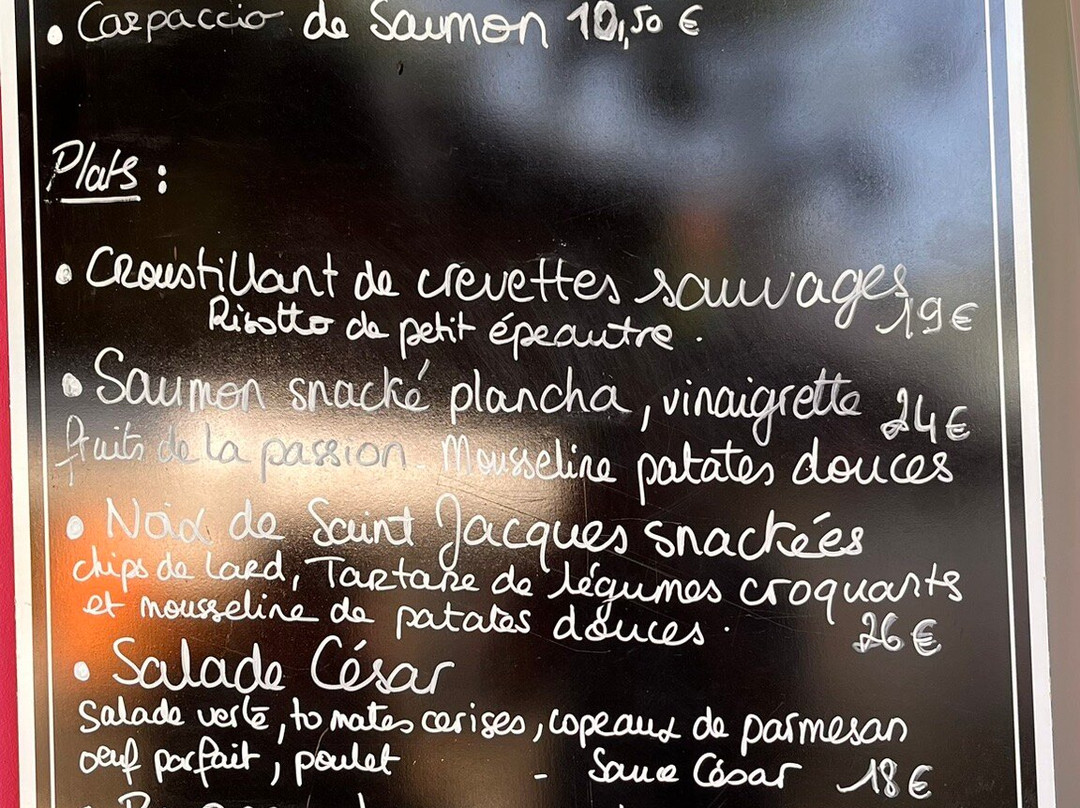 • Carpaccio de Saumon 10,50 €
Plats :
• Croustillant de crevettes sauvages
Risotto de petit épeautre. 19€
• Saumon snacké plancha, vinaigrette 24€
fruits de la passion. Mousseline patates douces
• Noix de Saint Jacques snackées
chips de Lard, Tartare de légumes croquants
et mousseline de patates douces. 26€
• Salade César
Salade verte, tomates cerises, copeaux de parmesan
oeuf parfait, poulet - Sauce César 18€